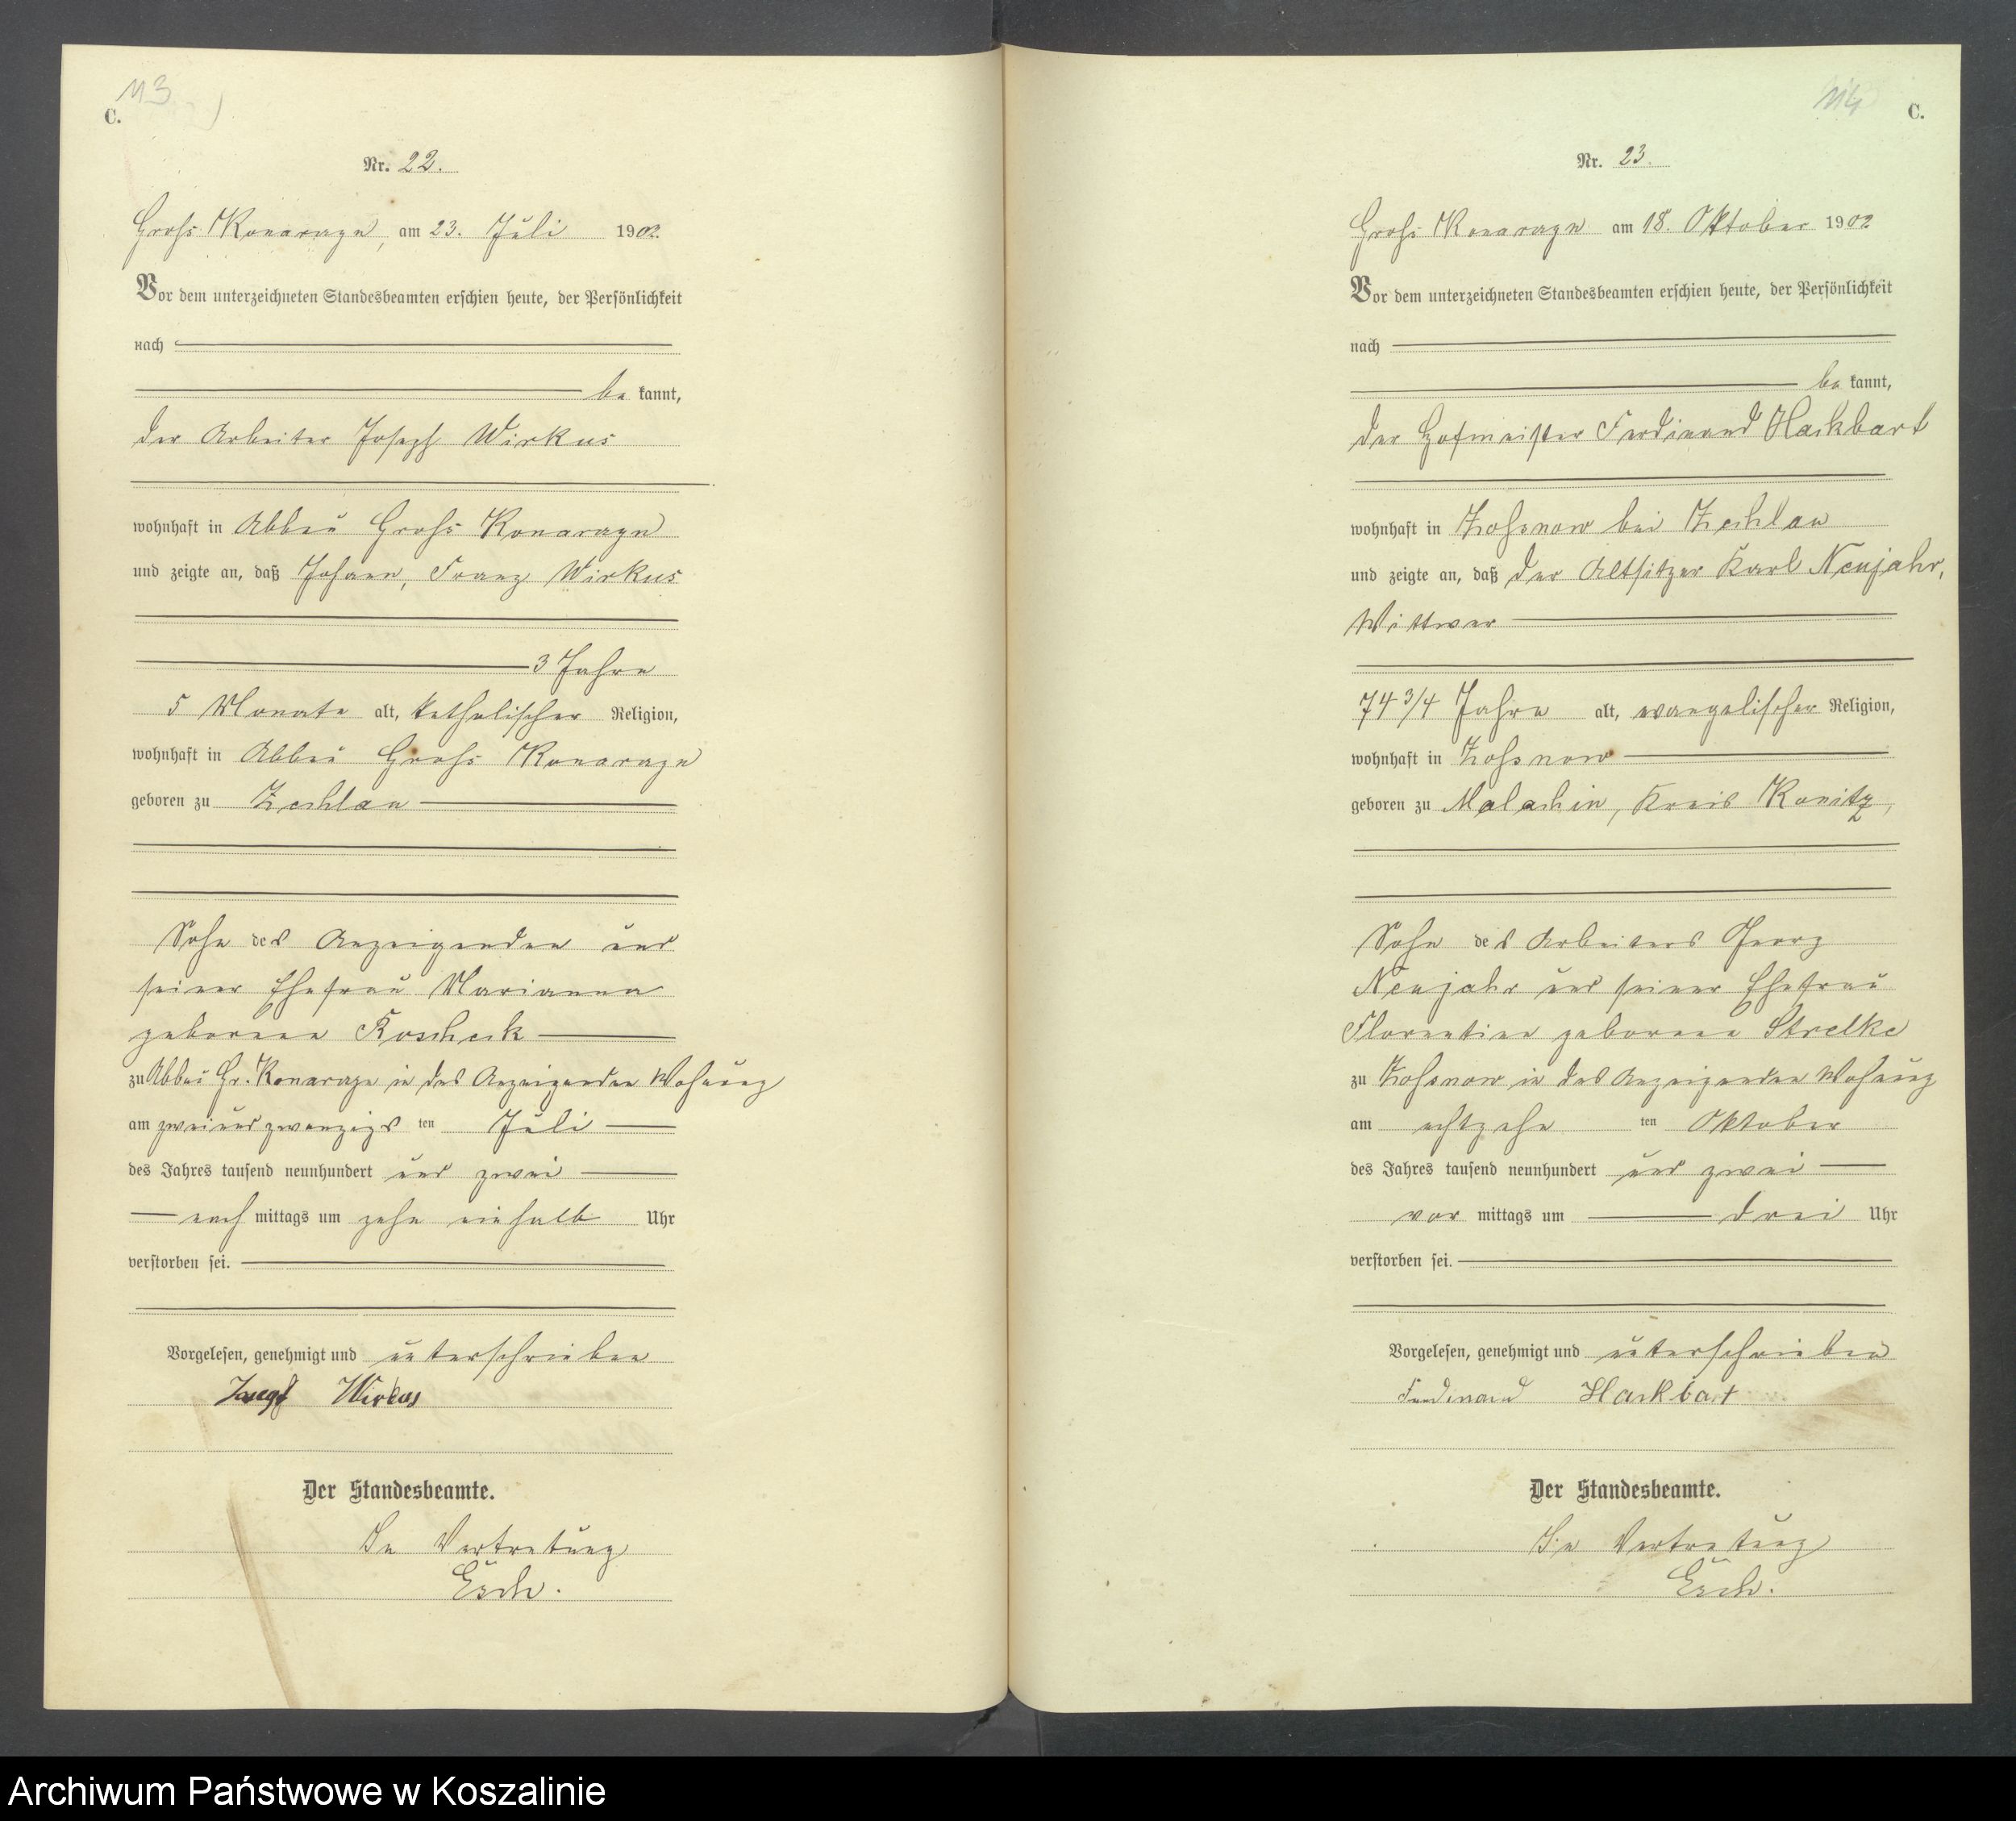 113
C.
Nr. 22.
Groß Konarzyn, am 23. Juli 1902.
Vor dem unterzeichneten Standesbeamten erschien heute, der Persönlichkeit
nach
be kannt,
der Arbeiter Joseph Wirkus
wohnhaft in Abbau Groß Konarzyn
und zeigte an, daß Johann, Franz Wirkus
3 Jahre
5 Monate alt, katholischer Religion,
wohnhaft in Abbau Groß Konarzyn
geboren zu Zechlau
Sohn des Anzeigenden und
seiner Ehefrau Marianna
geborenen Koscheck
zu Abbau Gr. Konarzyn in des Anzeigenden Wohnung
am zweiundzwanzigs ten Juli
des Jahres tausend neunhundert und zwei
nach mittags um zehn einhalb Uhr
verstorben sei.
Vorgelesen, genehmigt und unterschrieben
Josepf Wirkus
Der Standesbeamte.
In Vertretung
Esch.
114
C.
Nr. 23.
Groß Konarzyn am 18. Oktober 1902
Vor dem unterzeichneten Standesbeamten erschien heute, der Persönlichkeit
nach
be kannt,
der Hofmeister Ferdinand Hackbart
wohnhaft in Zoßnow bei Zechlau
und zeigte an, daß der Altsitzer Karl Neujahr,
Wittwer
74 3/4 Jahre alt, evangelischer Religion,
wohnhaft in Zoßnow
geboren zu Malachin, Kreis Konitz,
Sohn des Arbeiters Georg
Neujahr und seiner Ehefrau
Florentine geborenen Strelke
zu Zoßnow in des Anzeigenden Wohnung
am achtzehn ten Oktober
des Jahres tausend neunhundert und zwei
vor mittags um drei Uhr
verstorben sei.
Vorgelesen, genehmigt und unterschrieben
Ferdinand Hackbart
Der Standesbeamte.
In Vertretung
Esch.
Archiwum Państwowe w Koszalinie